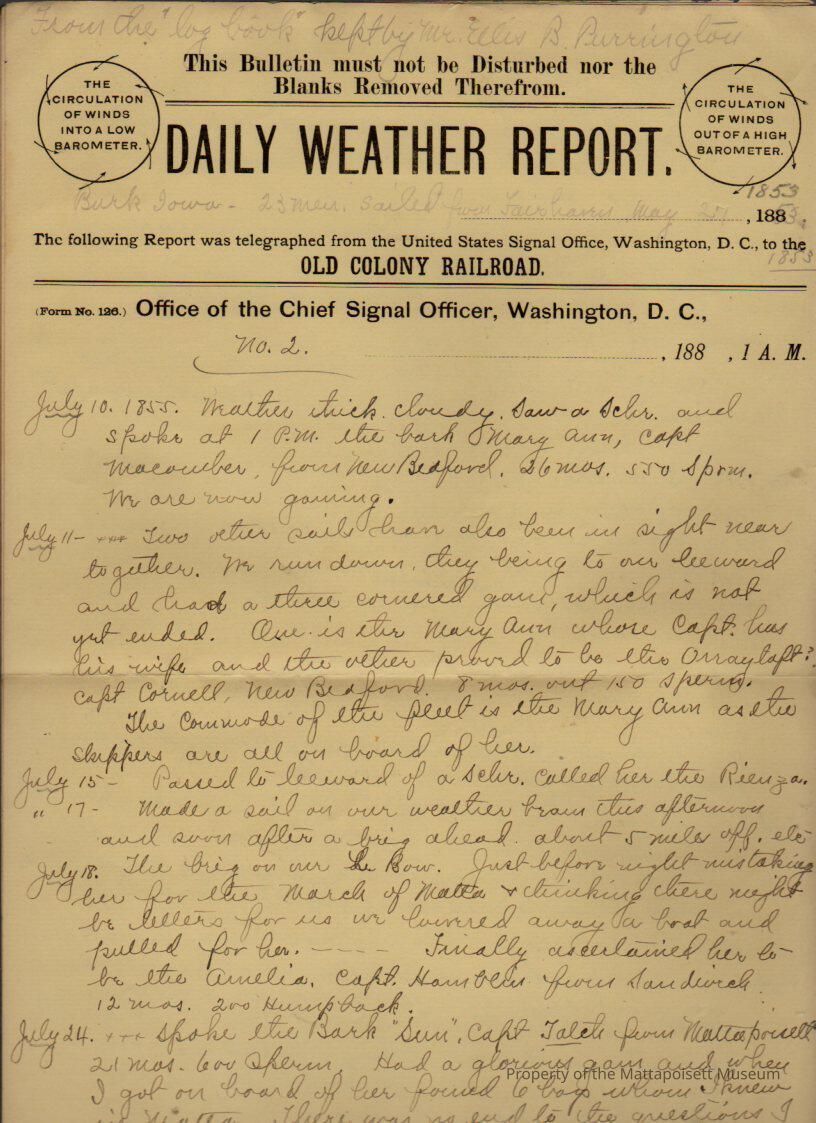 From the "log book" kept by Mr. Ellis B. Purrington
This Bulletin must not be Disturbed nor the
Blanks Removed Therefrom.
THE
CIRCULATION
OF WINDS
INTO A LOW
BAROMETER.
THE
CIRCULATION
OF WINDS
OUT OF A HIGH
BAROMETER.
DAILY WEATHER REPORT.
1853
Bark Iowa - 23 men. sailed from Fairhaven May , 188
The following Report was telegraphed from the United States Signal Office, Washington, D. C., to the
1853
OLD COLONY RAILROAD.
(Form No. 126.) Office of the Chief Signal Officer, Washington, D. C.,
No. 2.
, 188 , 1 A. M.
July 10. 1855. Weather thick. cloudy. Saw a Schr. and
spoke at 1 P.M. the bark Mary Ann, Capt
Macomber, from New Bedford. 26 mos. 550 Sperm.
We are now gamming.
July 11- *** Two other sails have also been in sight near
together. We run down, they being to our leeward
and had a three cornered gam, which is not
yet ended. One is the Mary Ann whose Capt. has
his wife and the other proved to be the Orray Taft?
capt Cornell, New Bedford. 8 mos. out 150 sperm.
The Commode of the fleet is the Mary Ann as the
skippers are all on board of her.
July 15- Passed to leeward of a Schr. Called her the Rienza.
" 17- Made a sail on our weather beam this afternoon
and soon after a brig ahead about 5 miles off. etc
July 18. The brig on our Le Bow. Just before night mistaking
her for the March of Matta & thinking there might
be letters for us we lowered away a boat and
pulled for her. - - - - Finally ascertained her to
be the Amelia, Capt. Hamblin from Sandwich
12 mos. 200 Humpback.
July 24. *** Spoke the Bark "Sun", Capt Tatch from Mattapoisett
21 mos. 600 Sperm. Had a glorious gam and when
Property of the Mattapoisett Museum
I got on board of her found 6 boys whom I knew
in Matta. There was no end to the questions I